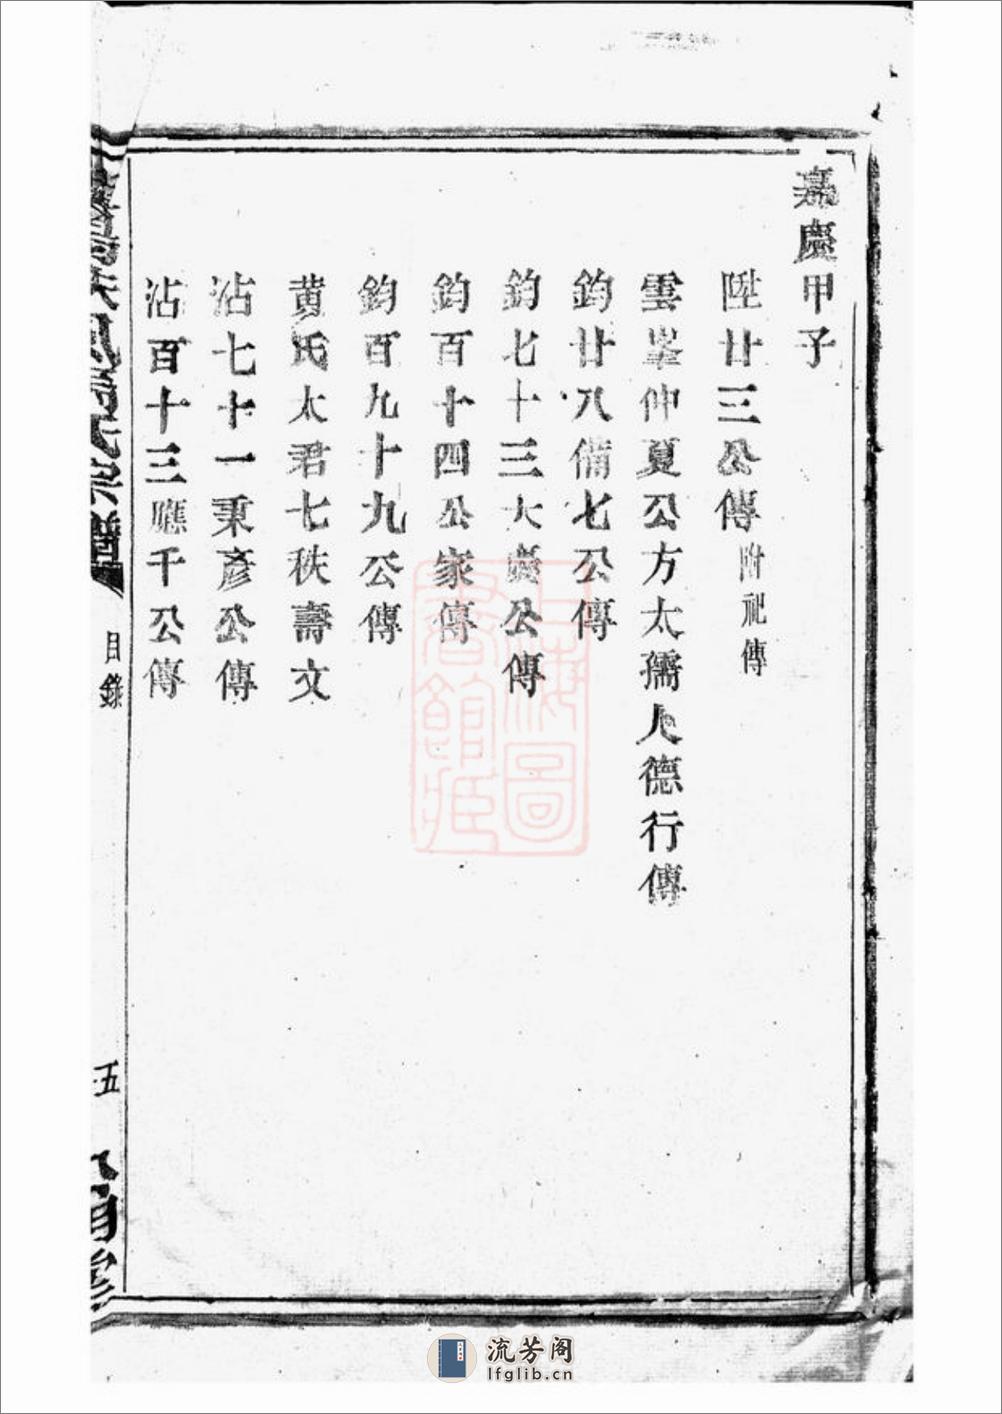 嘉慶甲子
陞廿三公傳 附祀傳
雲峯仲夏公方太孺人德行傳
鈞廿八備七公傳
鈞七十三大慶公傳
鈞百十四公家傳
鈞百九十九公傳
黄氏太君七秩壽文
沾七十一秉彥公傳
沾百十三應千公傳
氏宗譜
目錄
五
上海圖書館藏
流芳阁
lfglib.cn